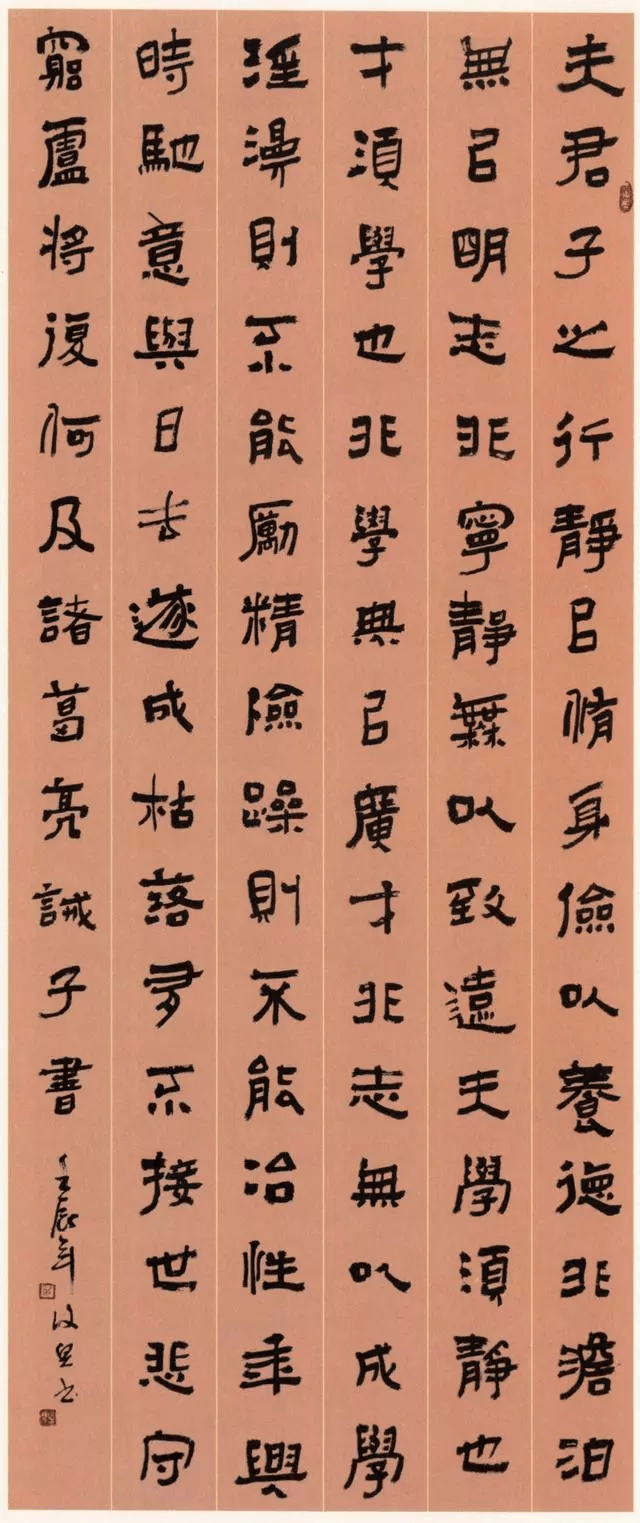 夫君子之行靜㠯脩身儉以養德非澹泊
無㠯明志非寧靜無以致遠夫學須靜也
才須學也非學無㠯廣才非志無以成學
淫漫則不能勵精險躁則不能治性年與
時馳意與日去遂成枯落多不接世悲守
窮廬將復何及諸葛亮誡子書 壬辰年 书